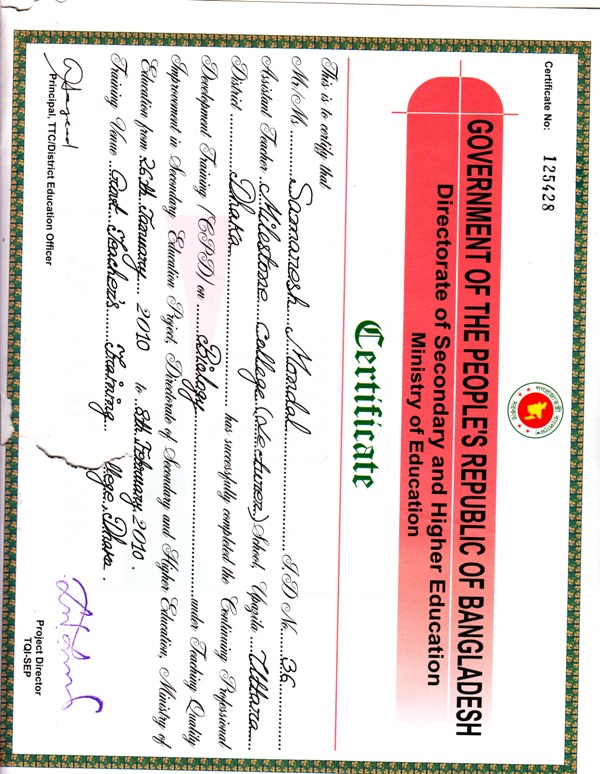 Certificate No: 125428
GOVERNMENT OF THE PEOPLE'S REPUBLIC OF BANGLADESH
Directorate of Secondary and Higher Education
Ministry of Education
Certificate
This is to certify that
Mr./Ms. Samaresh Mondal I.D No. 36
Assistant Teacher Milestone College (Lecturer) School, Upazila Uttara
District Dhaka has successfully completed the Continuing Professional
Development Training (CPD) on Biology under Teaching Quality
Improvement in Secondary Education Project, Directorate of Secondary and Higher Education, Ministry of
Education from 26th January 2010 to 8th February, 2010.
Training Venue Govt. Teacher's Training llege, Dhaka.
Principal, TTC/District Education Officer
Project Director
TQI-SEP